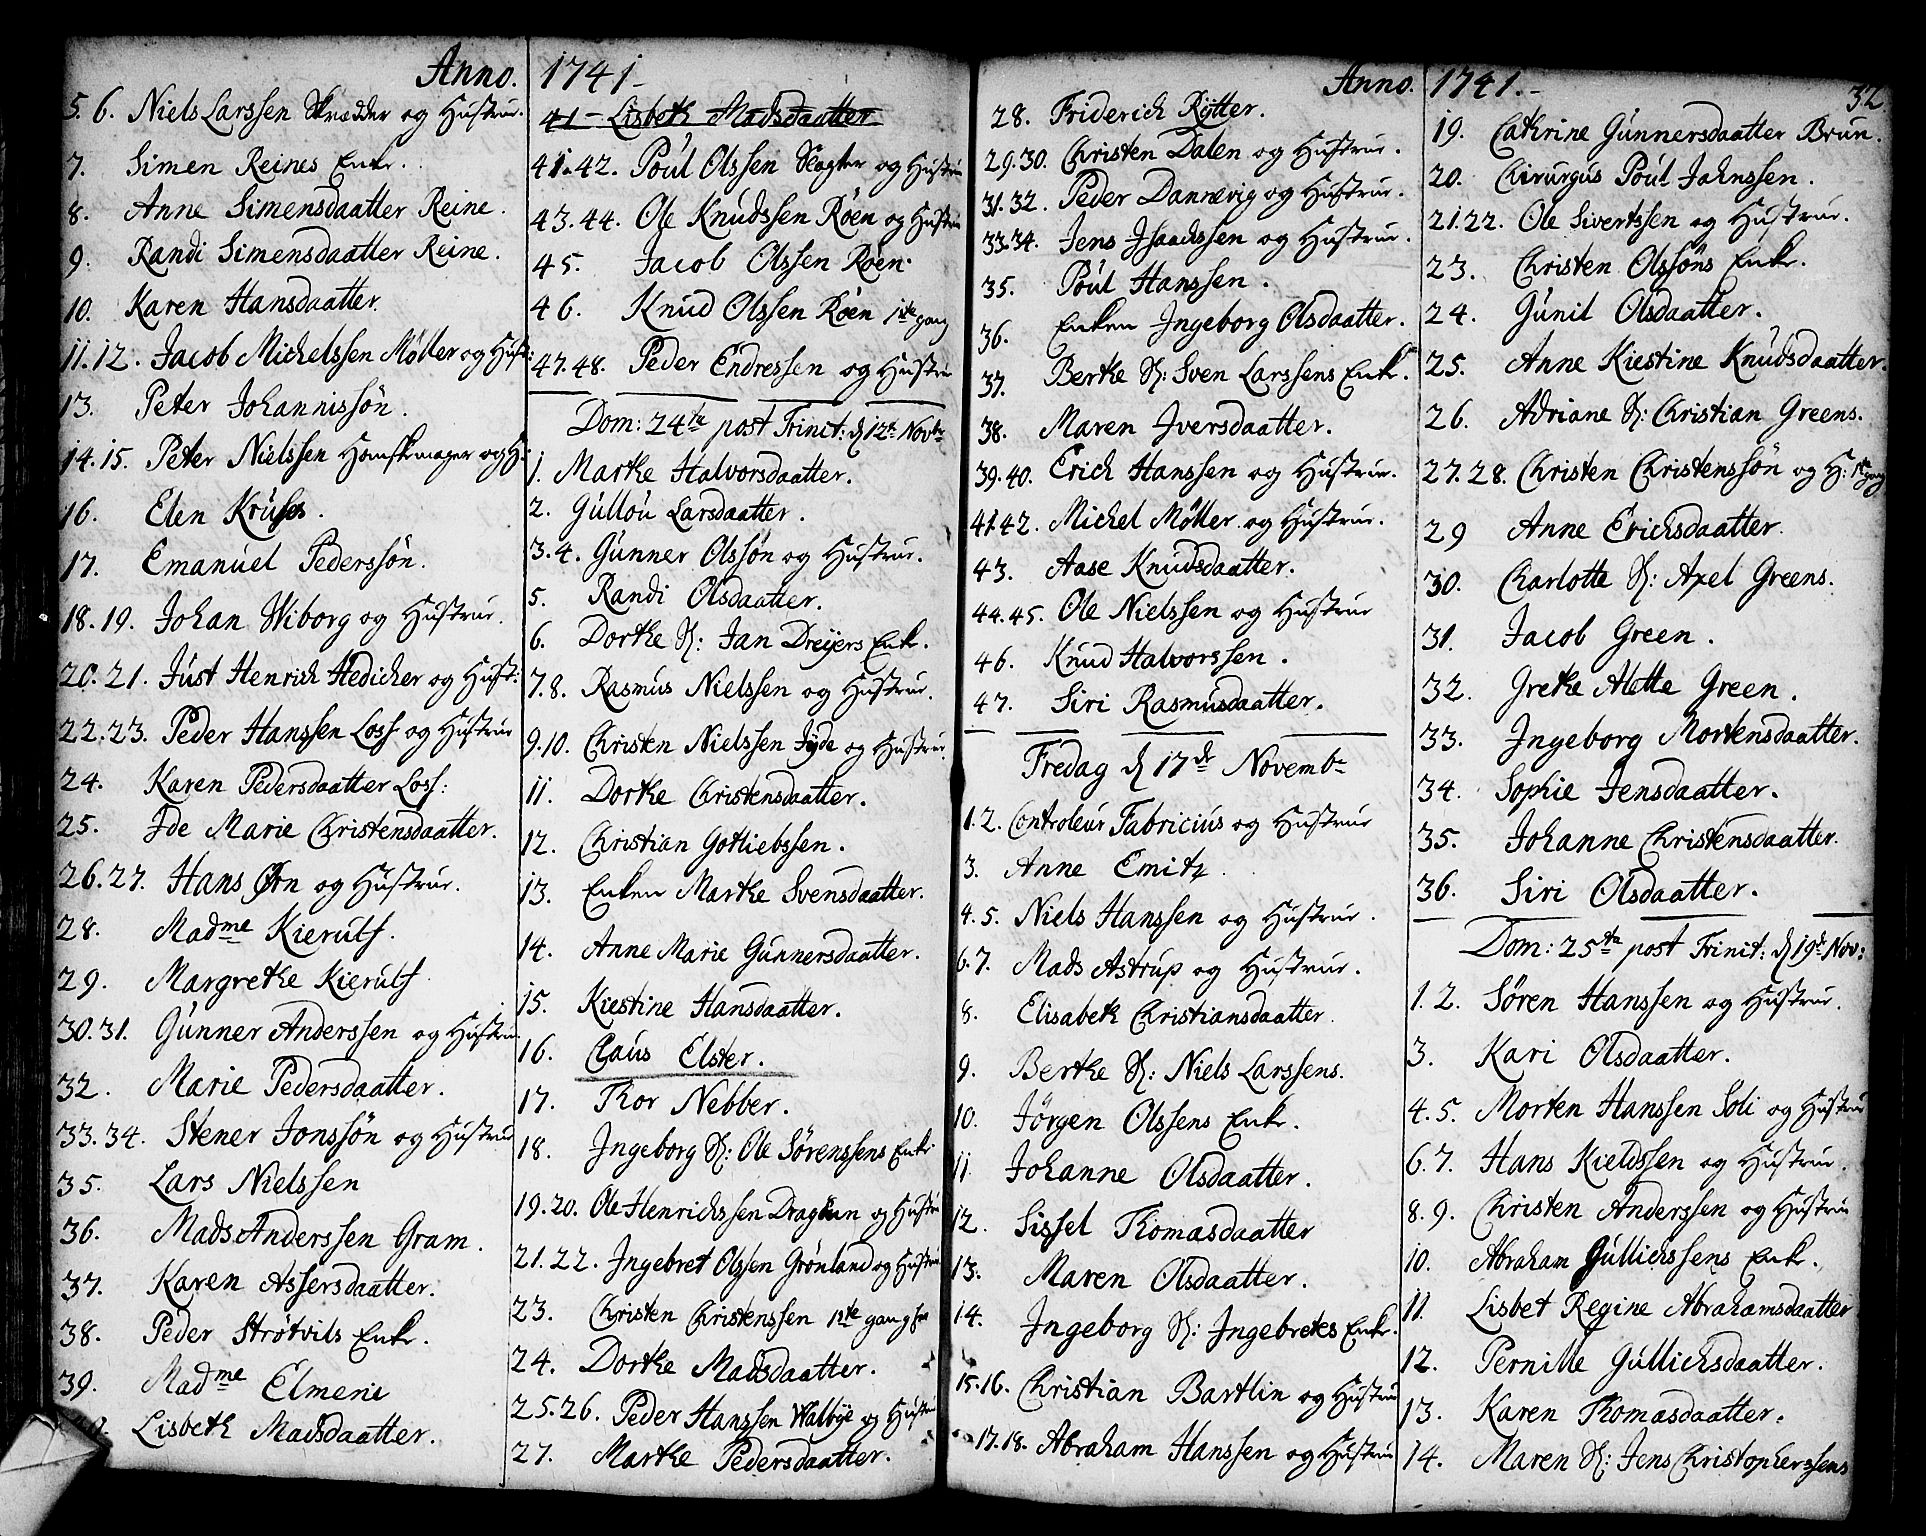 Anno. 1741.
5. 6. Niels Larssen Skrædder og Hustrur.
7. Simen Reines Enkr.
8. Anne Simensdaatter Reine.
9. Randi Simensdaatter Reine.
10. Karen Hansdaatter.
11. 12. Jacob Michelssen Møller og Hust:
13. Peter Johannissøn.
14. 15. Peter Nielssen Homskrmager og H:
16. Elen Krüses.
17. Emanuel Pederssøn.
18. 19. Johan Wiborg og Hustrur.
20. 21. Just Henrich Hedicker og Hust:
22. 23. Peder Hanssen Loss og Hustrur
24. Karen Pedersdaatter Loss:
25. Ide Marie Christensdaatter.
26. 27. Hans Ørn og Hustrur.
28. Madme Kierulf.
29. Margrethe Kierulf
30. 31. Gunner Anderssen og Hustrur
32. Marie Pedersdaatter.
33. 34. Stener Jonssøn og Hustrur
35. Lars Nielssen
36. Mads Anderssen Gram.
37. Karen Assersdaatter.
38. Peder Strøtvils Enkr.
39. Madme Elmeni
Lisbeth Madsdaatter.
41 Lisbeth Madsdaatter
41. 42. Poul Olssen Slagter og Hustru
43. 44. Ole Knudssen Røen og Hustru
45. Jacob Olssen Røen.
46. Knud Olssen Røen 1ste gang
47. 48. Peder Endressen og Hustru
Dom: 24te post Trinit: d 12te Novbr
1. Marthe Halvorsdaatter.
2. Gullou Larsdaatter.
3. 4. Gunner Olssøn og Hustrur.
5. Randi Olsdaatter.
6. Dorthe S: Jan Dreyers Enkr.
7. 8. Rasmus Nielssen og Hustrur.
9. 10. Christen Nielssen Jyde og Hustrur.
11. Dorthe Christensdaatter.
12. Christian Gotliebssen.
13. Enken Marthe Svensdaatter.
14. Anne Marie Gunnersdaatter.
15. Kiestine Hansdaatter.
16. Claus Elster.
17. Thor Nebber.
18. Ingeborg S: Ole Sørenssens Enkr
19. 20. Ole Henrichssen Dragun og Hustru
21. 22. Ingebret Olssen Grønland og Hustru
23. Christen Christenssen 1ste gang
24. Dorthe Madsdaatter.
25. 26. Peder Hanssen Walbye og Hustru
27. Marthe Pedersdaatter.
Anno. 1741. 32
28. Friderich Rytter.
29. 30. Christen Dalen og Hustrur.
31. 32. Peder Dannevig og Hustrur.
33. 34. Jens Isachssen og Hustrur.
35. Poul Hanssen.
36. Enken Ingeborg Olsdaatter.
37. Berthe S: Sven Larssens Enkr.
38. Maren Iversdaatter.
39. 40. Erich Hanssen og Hustrur.
41. 42. Michel Møller og Hustrur.
43. Aase Knudsdaatter.
44. 45. Ole Nielssen og Hustrur
46. Knud Halvorssen.
47. Siri Rasmusdaatter.
Fredag d 17de Novembr
1. 2. Controleur Fabricius og Hustrur
3. Anne Emitz.
4. 5. Niels Hanssen og Hustrur.
6. 7. Mads Astrup og Hustrur.
8. Elisabeth Christiansdaatter.
9. Berthe S: Niels Larssens.
10. Jørgen Olssens Enkr.
11 Johanne Olsdaatter.
12. Sissel Thomasdaatter
13. Maren Olsdaatter.
14. Ingeborg S: Ingebretes Enkr.
15. 16. Christian Bartlin og Hustrur
17. 18. Abraham Hanssen og Hustrur
19. Cathrine Gunnersdaatter Brun.
20. Chirurgus Poul Jahnssen.
21. 22. Ole Sivertssen og Hustrur.
23. Christen Olssøns Enkr.
24. Gunil Olsdaatter.
25. Anne Kiestine Knudsdaatter.
26. Adriane S: Christian Greens.
27. 28. Christen Christenssøn og H: 1te gang
29 Anne Erichsdaatter.
30. Charlotte S: Axel Greens.
31. Jacob Green.
32. Grethe Alette Green.
33. Ingeborg Mortensdaatter.
34. Sophie Jensdaatter.
35. Johanne Christensdaatter.
36. Siri Olsdaatter.
Dom: 25te post Trinit: d 19de Nov:
1. 2. Søren Hanssen og Hustrur.
3. Kari Olsdaatter.
4. 5. Morten Hanssen Soli og Hustrur
6. 7. Hans Kieldssen og Hustrur.
8. 9. Christen Anderssen og Hustrur
10. Abraham Gullichssens Enkr.
11. Lisbet Regine Abrahamsdaatter
12. Pernille Gullichsdaatter.
13. Karen Thomasdaatter.
14. Maren S: Jens Christopherssens